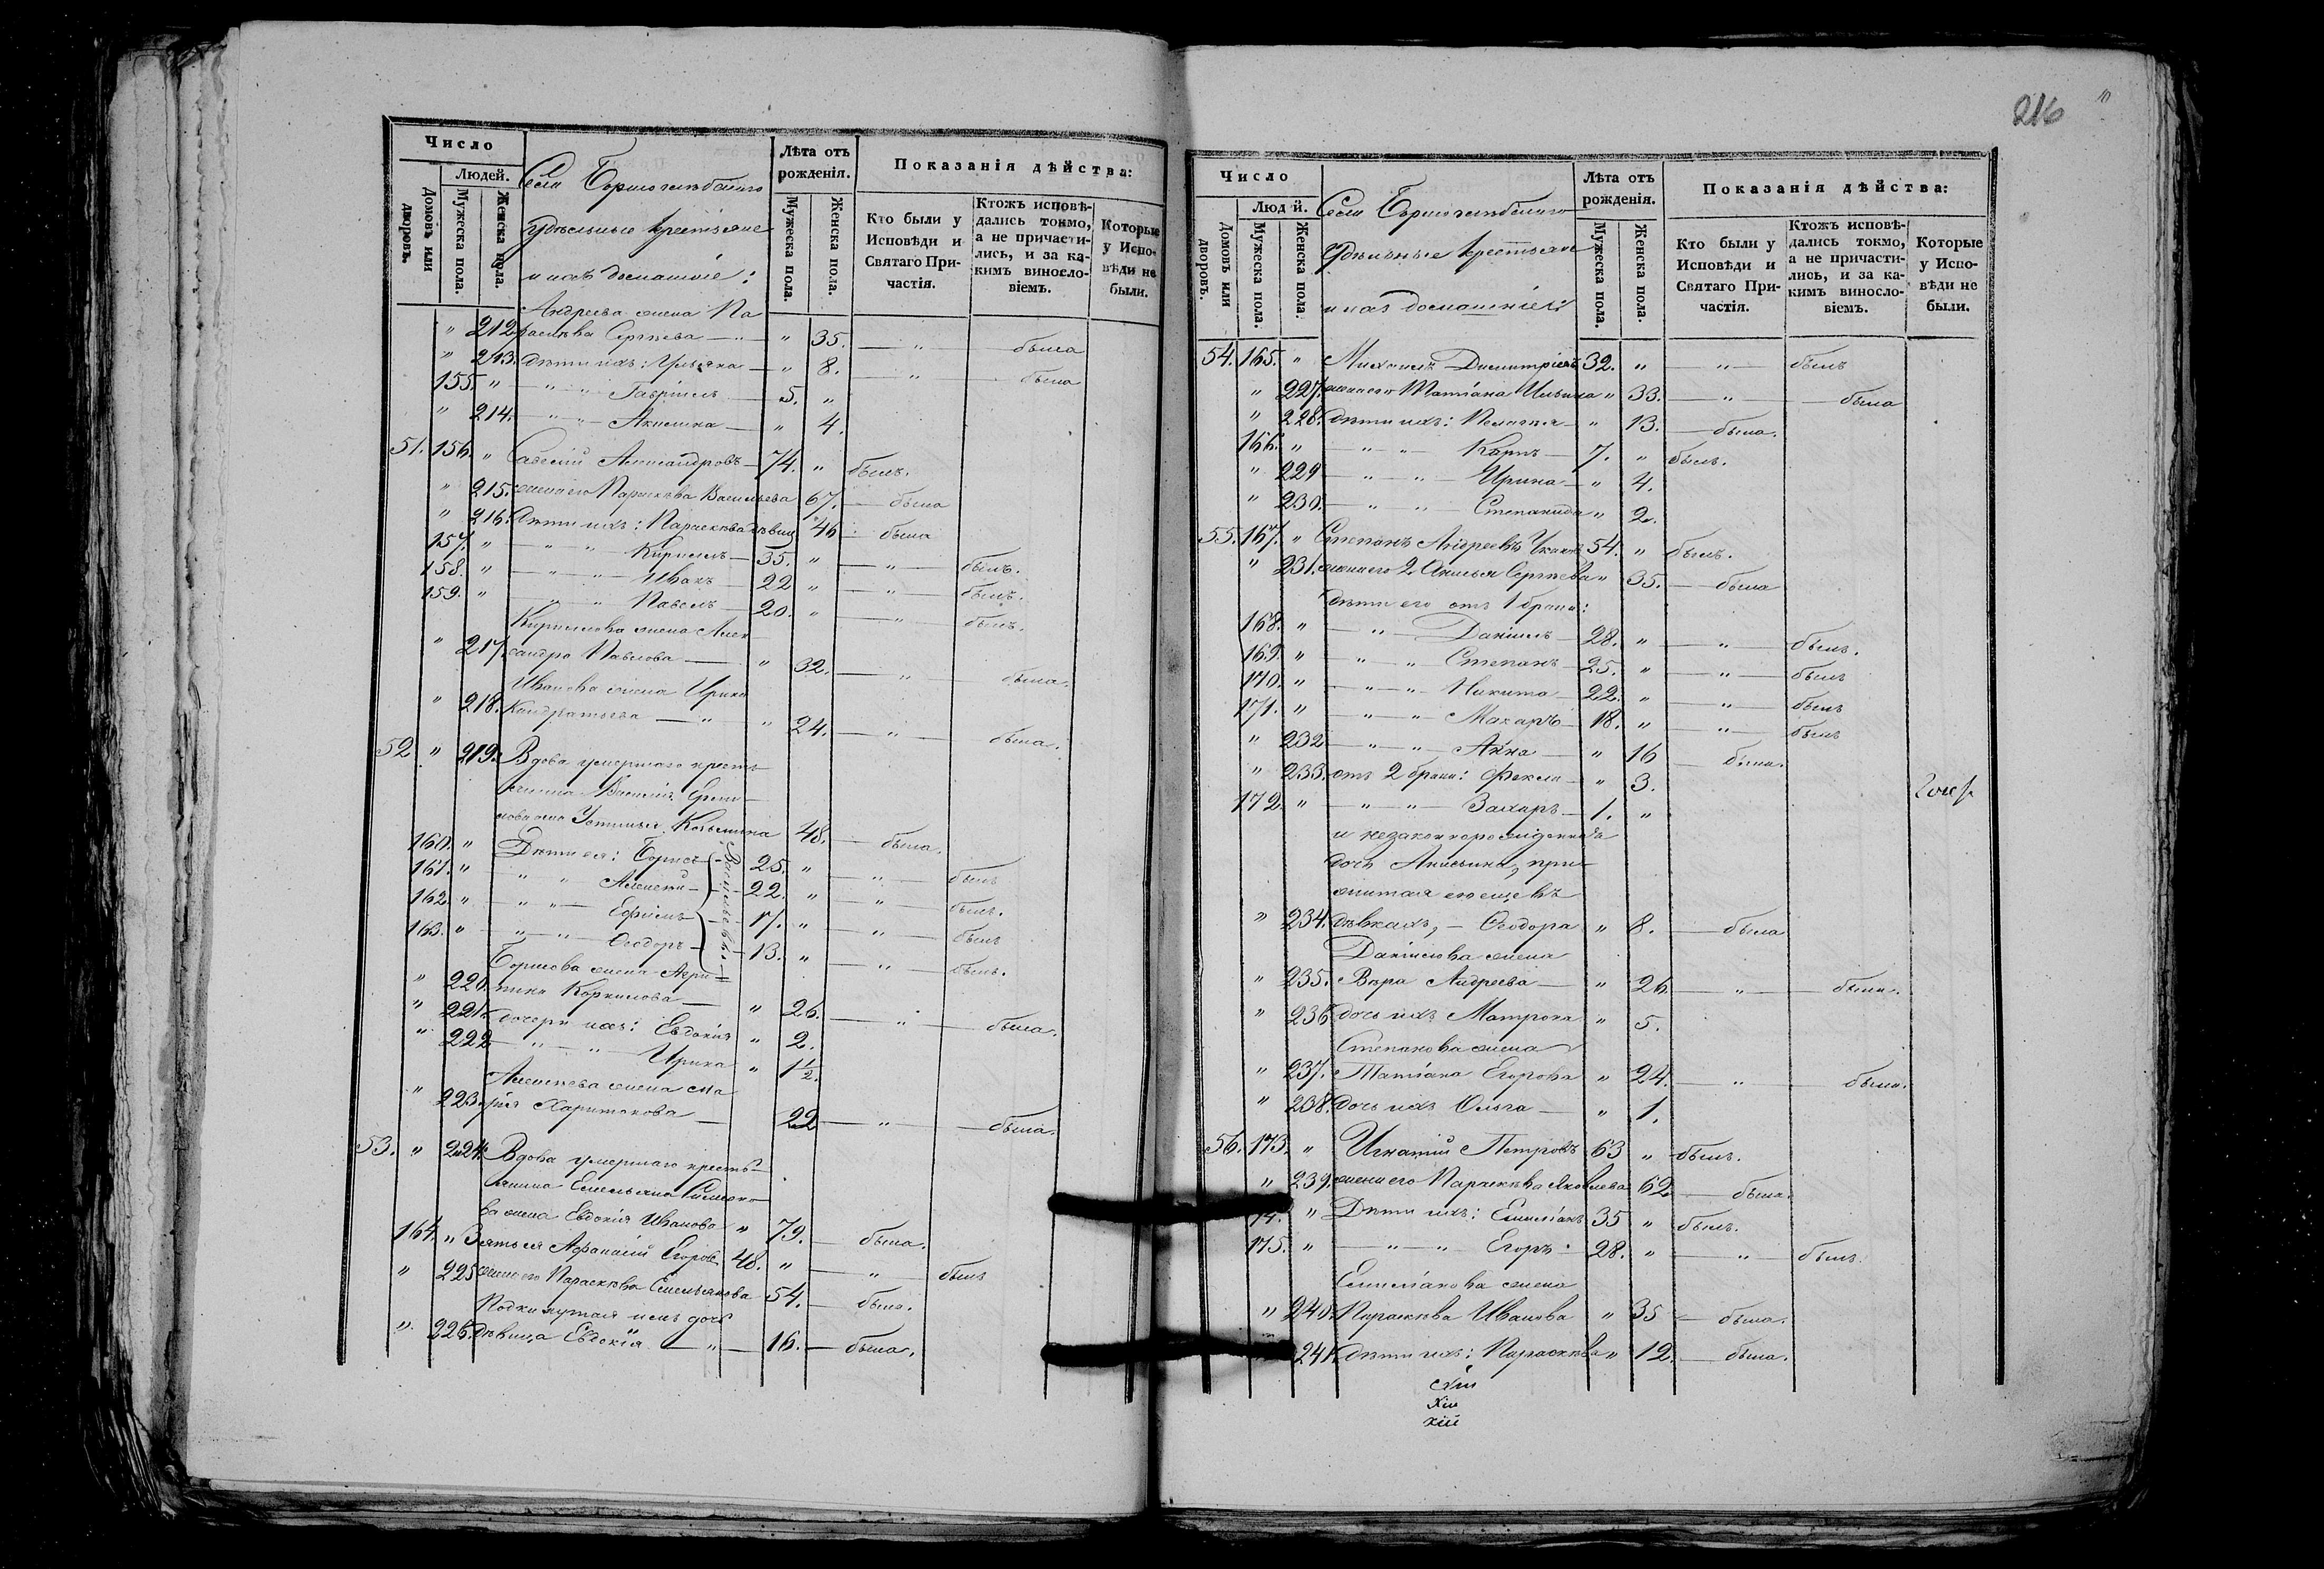 Число
Людей.
Домовъ или дворовъ.
Мужеска пола.
Женска пола.
Села Борисоглѣбскаго
удѣльные крестьяне
и ихъ домашніе:
Лѣта отъ рожденія.
Мужеска пола.
Женска пола.
Показанія дѣйства:
Кто были у Исповѣди и Святаго Причастія.
Ктожъ исповѣдались токмо, а не причастились, и за какимъ винословіемъ.
Которые у Исповѣди не были.
Андреева жена Па
" 212. раскева Сергѣева — " — " 35. — " — была
" 213. дѣти ихъ: Ульяна — " 8. — " — была
155. " — " — Гавріилъ — 5. "
" 214. — " — Акилина — " 4.
51. 156. " Савелій Александровъ — 74. " былъ.
" 215. жена его Параскева Васильева 67. — была
" 216. Дѣти ихъ: Параскева дѣвица 46 — была
157. " — " — Кириллъ — 35. " — " — былъ.
158. " — " — Иванъ — 22 " — " — былъ.
159. " — " — Павелъ — 20. " — " — былъ.
Кириллова жена Алек
" 217. сандра Павлова — " 32. — " — была.
Иванова жена Ирина
" 218. Кандратьева — " — " 24. — " — была.
52 " 219. Вдова умершаго кресть
янина Василія
жена Устинья Козьмина 48. — была.
160. " Дѣти ея: Борисъ 25. " — " — былъ
161. " " " Алексѣй — 22. " — " — былъ.
162. " " " — Ефимъ — 17. " — " — былъ
163. " — " — Ѳеодоръ — 13. " — " — былъ.
Васильевы
Борисова жена Агри
" 220. пина Корнилова — " 26. — " — была.
" 221. дочери ихъ: Евдокія " 2.
" 222 — " — " — Ирина " 1½.
Алексѣева жена Ма
" 223. рія Харитонова — 22 — " — была.
53. " 224. Вдова умершаго кресть
янина Емельяна Симоно
ва жена Евдокія Иванова " 79. — была.
164. " Зять ея Афанасій Егоровъ 48. " — " — былъ
" 225 жена его Параскева Емельянова 54. — была.
Подкинутая имъ дочь
" 226. дѣвица Евдокія — " — 16. — была.
216
10
Число
Людей.
Домовъ или дворовъ.
Мужеска пола.
Женска пола.
Села Борисоглѣбскаго
удѣльные крестьяне
и ихъ домашніе:
Лѣта отъ рожденія.
Мужеска пола.
Женска пола.
Показанія дѣйства:
Кто были у Исповѣди и Святаго Причастія.
Ктожъ исповѣдались токмо, а не причастились, и за какимъ винословіемъ.
Которые у Исповѣди не были.
54. 165. " Михаилъ Димитріевъ 32. " — " — былъ
" 227. жена его Татіана Ильина " 33. — " — была
" 228. дѣти ихъ: Пелагея — " 13. — была.
166. " — " — Карпъ — 7. " былъ.
" 229 — " — " — Ирина — " 4.
" 230. — " — " — Степанида " 2.
55. 167. " Степанъ Андреевъ 54. " былъ.
" 231. жена его 2 Анисья Сергѣева " 35. — была
дѣти его отъ 1 брака:
168. " — " — Даніилъ — 28. " — " — былъ.
169. " — " — " Степанъ — 25. " — " — былъ
170. " — " — " Никита — 22. " — " — былъ
171. " — " — " Макаръ — 18. " — " — былъ
" 232 — " — " — Анна — " 16 — была.
" 233. отъ 2 брака: Фекла — " 3.
172. " — " — " — Захаръ — 1. "
и незаконнорожденная
дочь Анисьина, при
житая ею еще въ
" 234. дѣвкахъ, — Ѳеодора " 8. — была
Даніилова жена
" 235. Вѣра Андреева — " 26. — " — была.
" 236 дочь ихъ Матрона " 5.
Степанова жена
" 237. Татіана Егорова " 24. — " — была.
" 238. дочь ихъ Ольга — " 1.
56. 173. " Игнатій Петровъ 63 " былъ.
" 239. жена его Параскева Яковлева 62 — была.
74. " Дѣти ихъ: Емиліанъ 35 " былъ.
175. " — " — " Егоръ — 28. " — " — былъ.
Емиліанова жена
" 240. Параскева Иванова " 35 — была.
241. дѣти ихъ: Параскева " 12. — была.